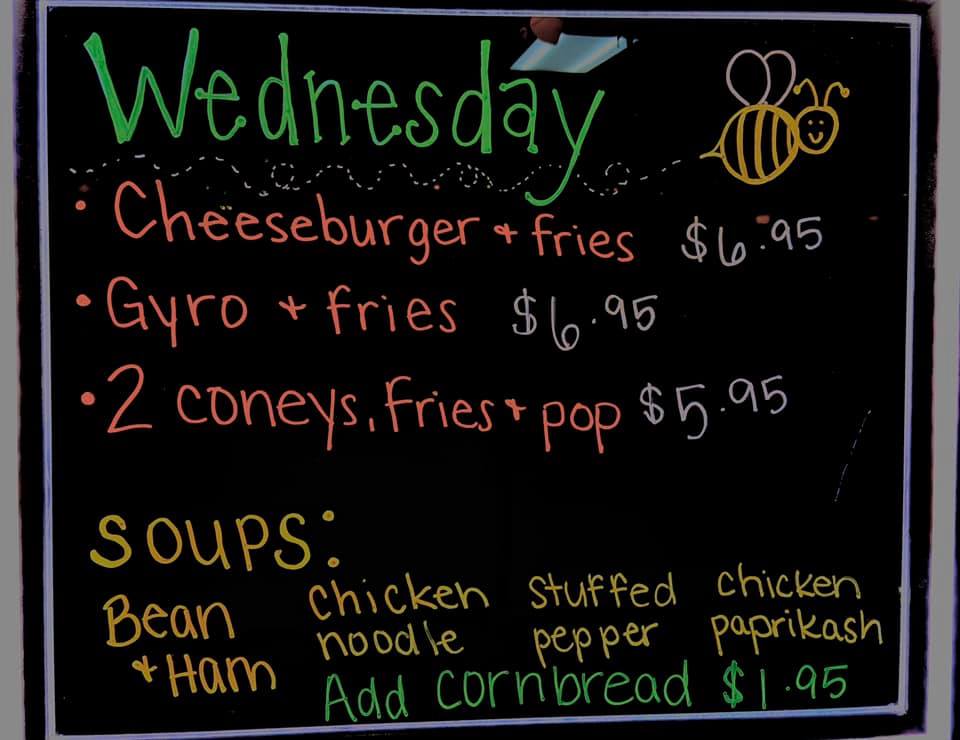 Wednesday
• Cheeseburger + fries $6.95
• Gyro + fries $6.95
• 2 coneys, fries + pop $5.95
soups:
Bean + Ham
chicken noodle
stuffed pepper
chicken paprikash
Add cornbread $1.95